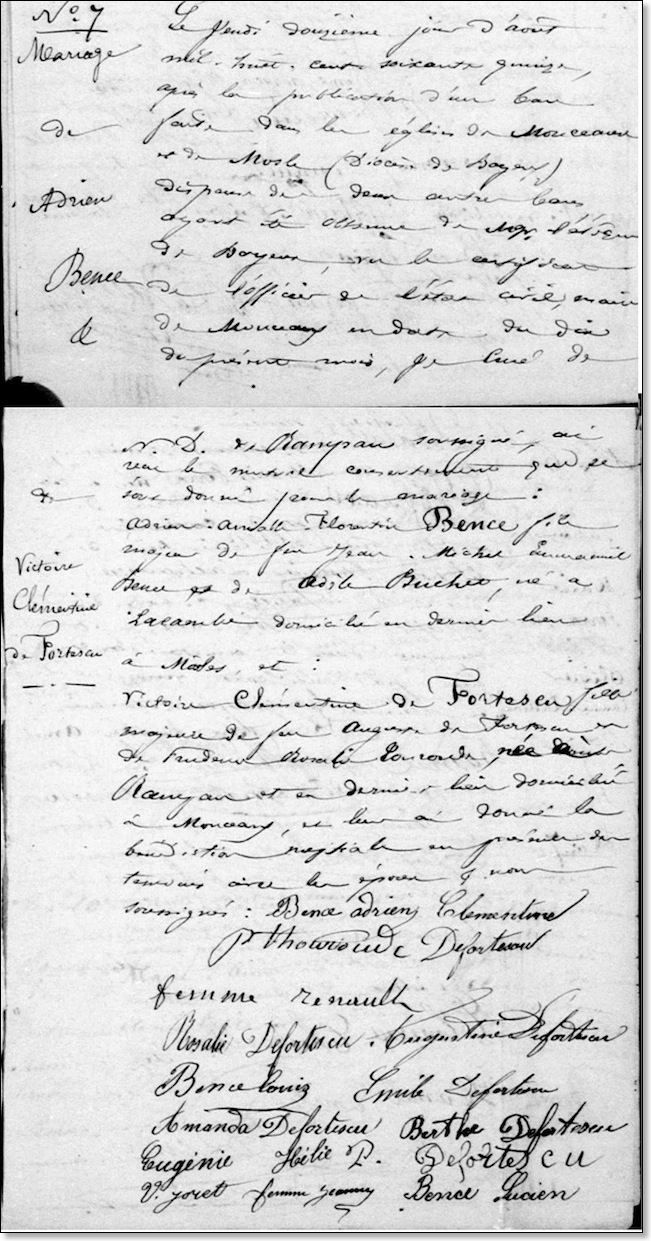 No 7
Mariage
de
Adrien
Bence
&
Le Jeudi douzième jour d'août
mil-huit-cent soixante quinze,
après la publication d'un ban
faite dans les églises de Monceaux
et de Mosles (Diocèse de Bayeux)
dispense de deux autres bans
ayant été obtenue de Mgr l'évêque
de Bayeux, vu le certificat
de l'officier de l'état civil, maire
de Monceaux en date du dix
du présent mois, Je Curé de
&
Victoire
Clémentine
de Fortescu
N. D. de Rampan soussigné, ai
reçu le mutuel consentement que se
sont donné pour le mariage :
Adrien Florentin Bence fils
majeur de feu Jean-Michel Emmanuel
Bence et de Adèle Buchet, né à
Lacambe domicilié en dernier lieu
à Mosles et :
Victoire Clémentine de Fortescu fille
majeure de feu Auguste de Fortescu et
de Prudence Rosalie née
Rampan et en dernier lieu domiciliée
à Monceaux, et leur ai donné la
bénédiction nuptiale en présence des
témoins avec les époux & nous
soussignés : Bence adrien Clementine
Defortescu
femme renault
Rosalie Defortescu . Augustine Defortescu
Bence Louis Emile Defortescu
Amanda Defortescu Berthe Defortescu
Eugénie Hélie P. Defortescu
V. Joret femme Bence Lucien